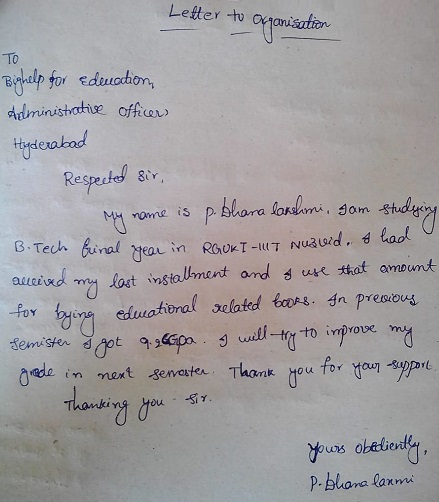 Letter to Organisation
To
Bighelp for education,
Administrative officer,
Hyderabad
Respected Sir,
My name is P. bhana lakshmi. I am studying
B.Tech final year in RGUKT-IIIT Nuzvid. I had
received my last installment and I use that amount
for bying educational related books. In previous
semister I got 9.2 I will try to improve my
grade in next semester. Thank you for your support
Thanking you sir.
yours obediently,
P. bhana laxmi